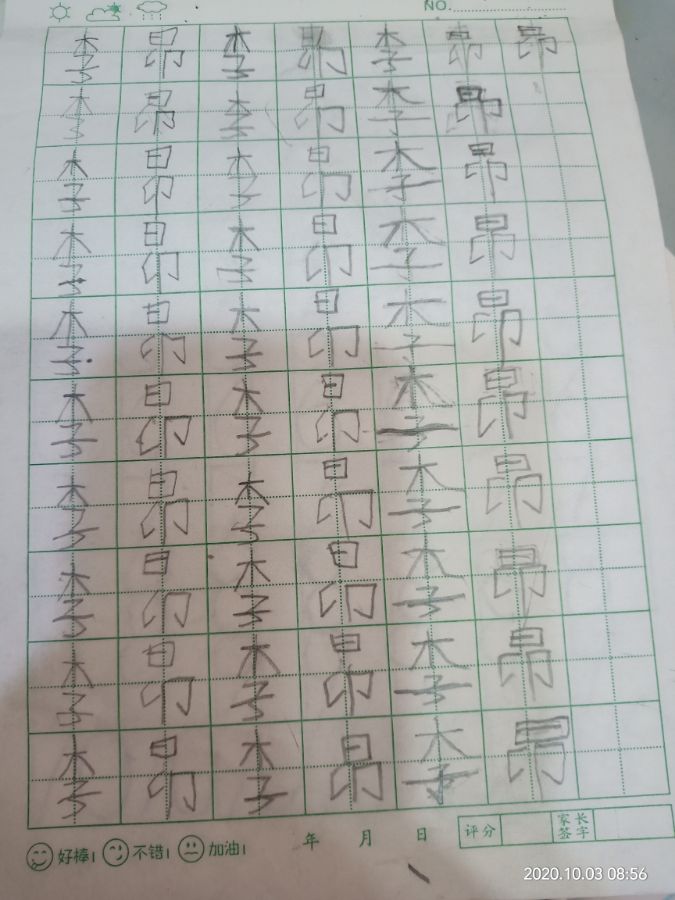 NO.
李 昂 李 昂 李 昂 昂
李 昂 李 昂 李 昂
李 昂 李 昂 李 昂
李 昂 李 昂 李 昂
李 昂 李 昂 李 昂
李 昂 李 昂 李 昂
李 昂 李 昂 李 昂
李 昂 李 昂 李 昂
李 昂 李 昂 李 昂
李 昂 李 昂 李 昂
好棒! 不错! 加油! 年 月 日 评分 家长签字
2020.10.03 08:56